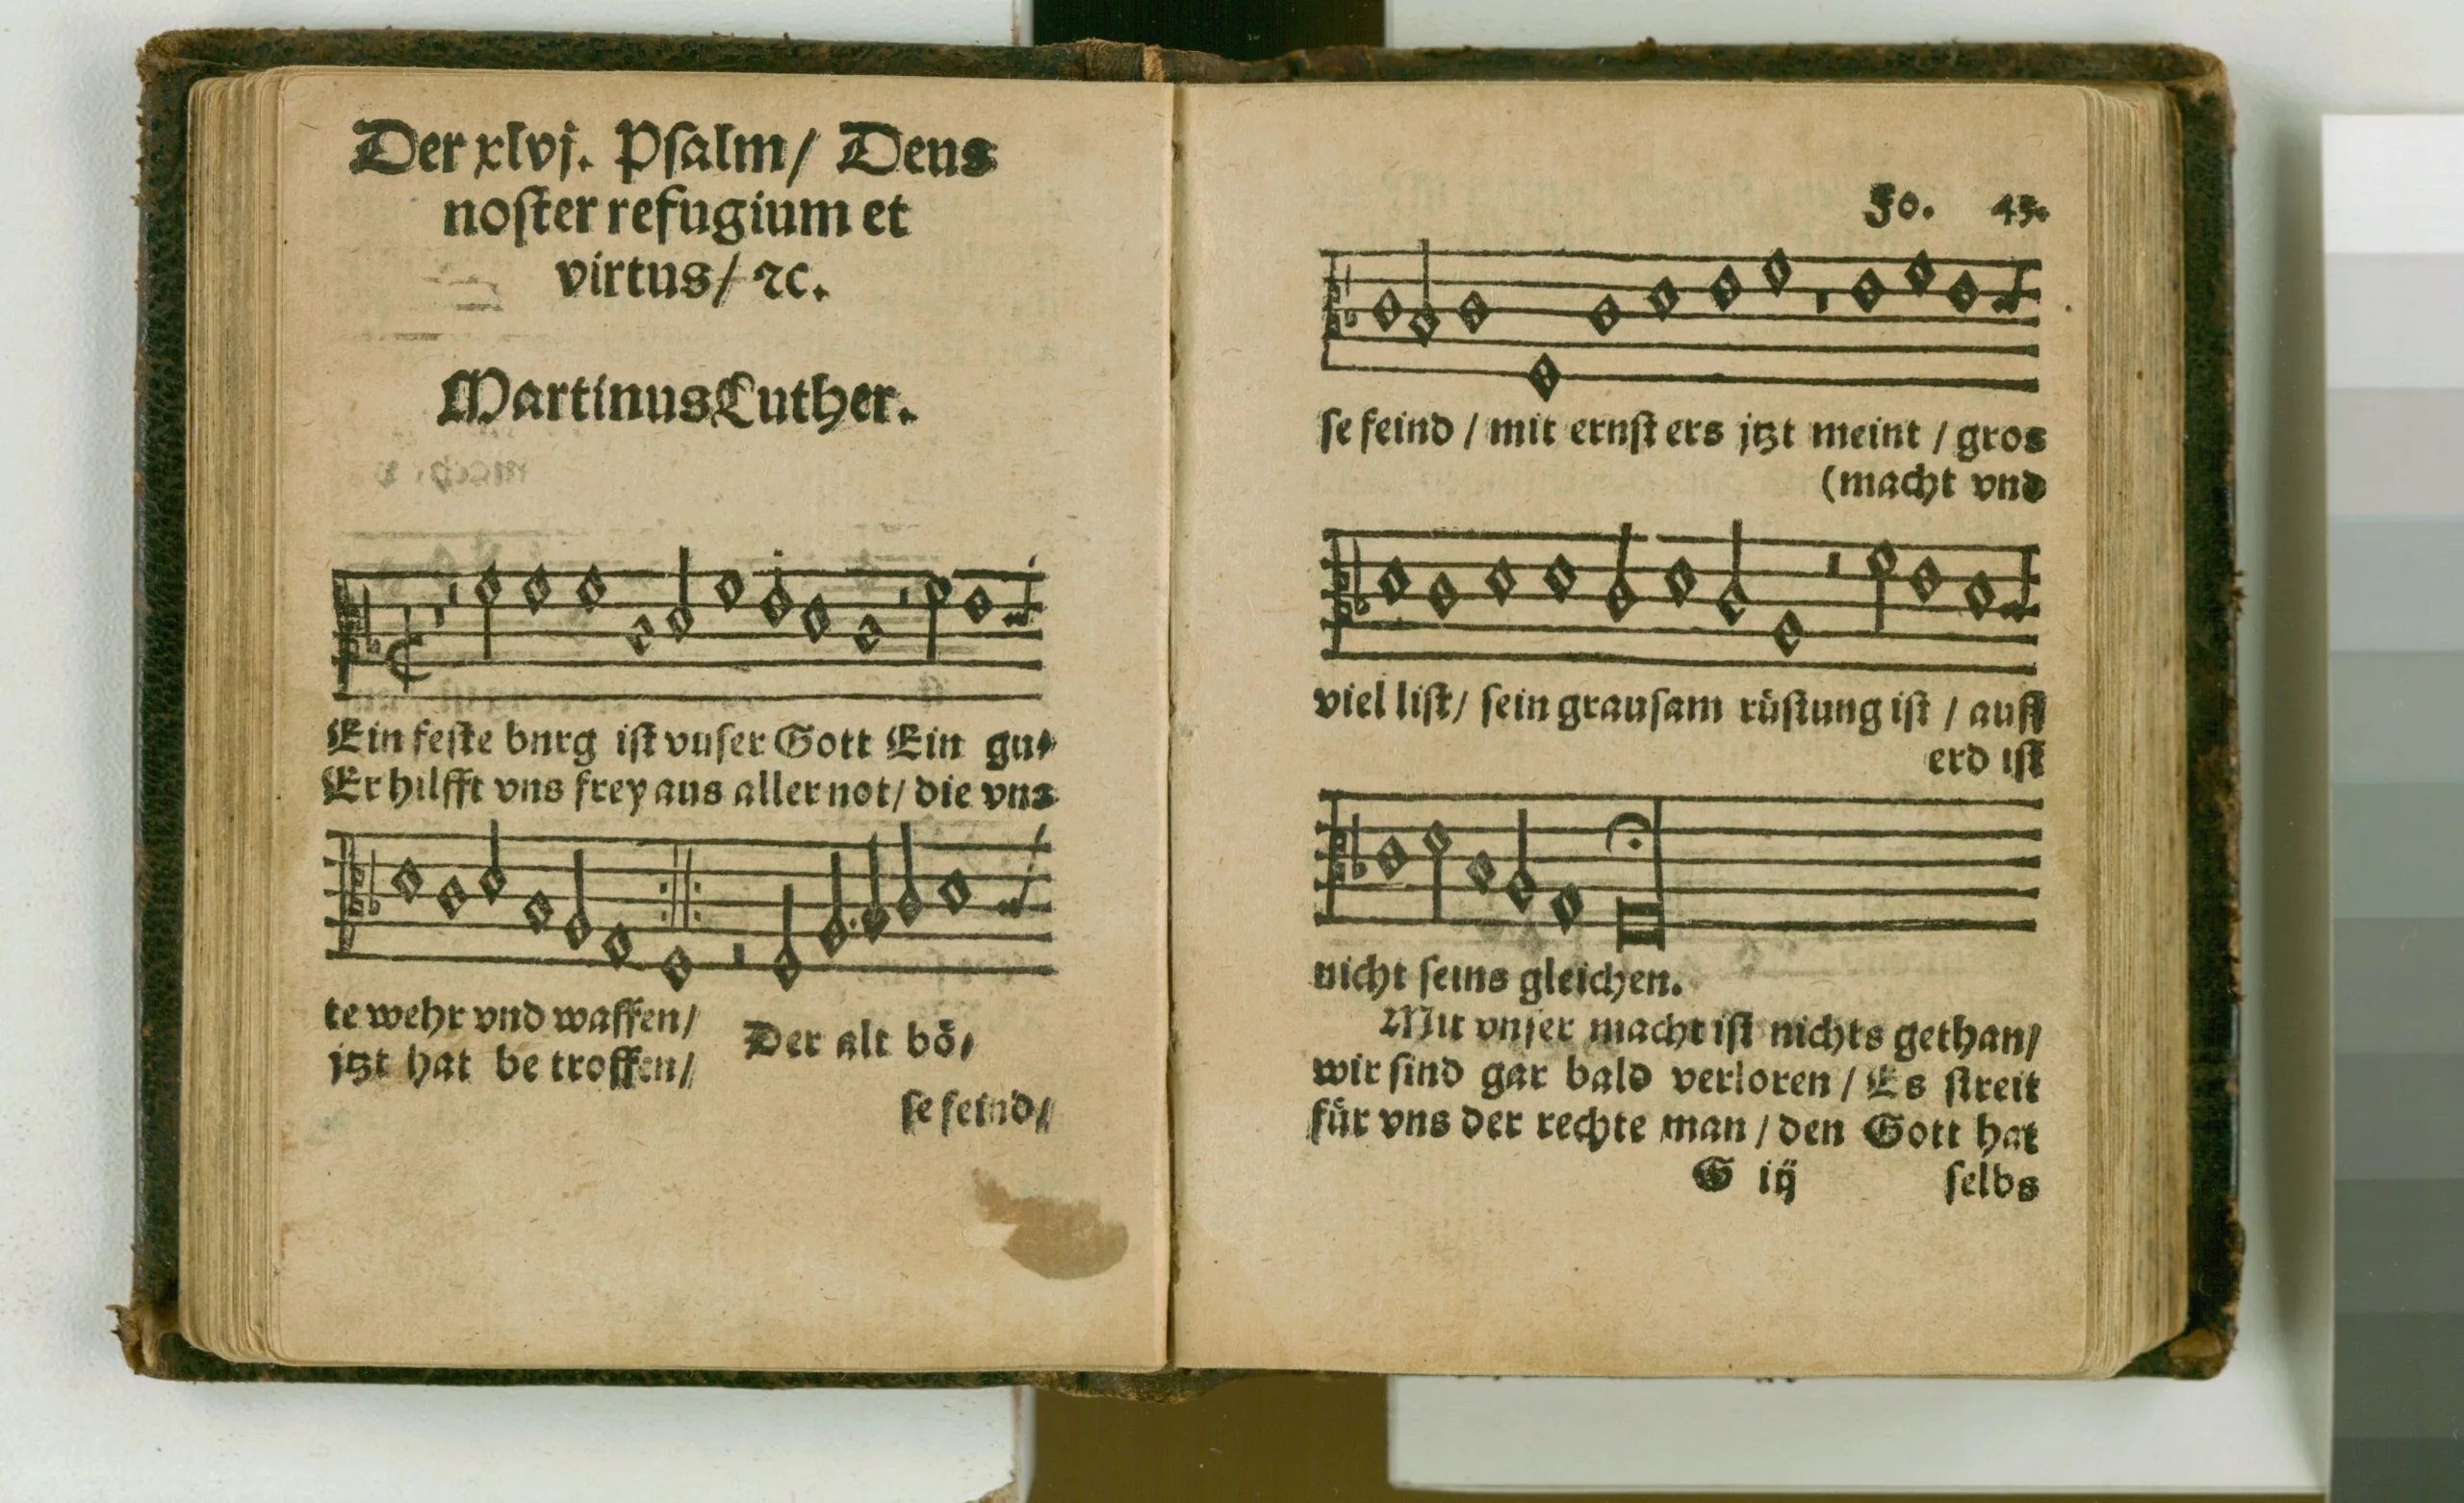 Der xlvj. Psalm/ Deus
noster refugium et
virtus/ ꝛc.
Martinus Luther.
Ein feste bnrg ist vnser Gott Ein gu⸗
Er hilfft vns frey aus aller not/ die vns
te wehr vnd waffen/
jtzt hat be troffen/
Der alt bö⸗
se feind/
Fo. 43.
se feind / mit ernst ers jtzt meint / gros
(macht vnd
viel list/ sein grausam rüstung ist / auff
erd ist
nicht seins gleichen.
Mit vnser macht ist nichts gethan/
wir sind gar bald verloren / Es streit
für vns der rechte man / den Gott hat
G iij selbs